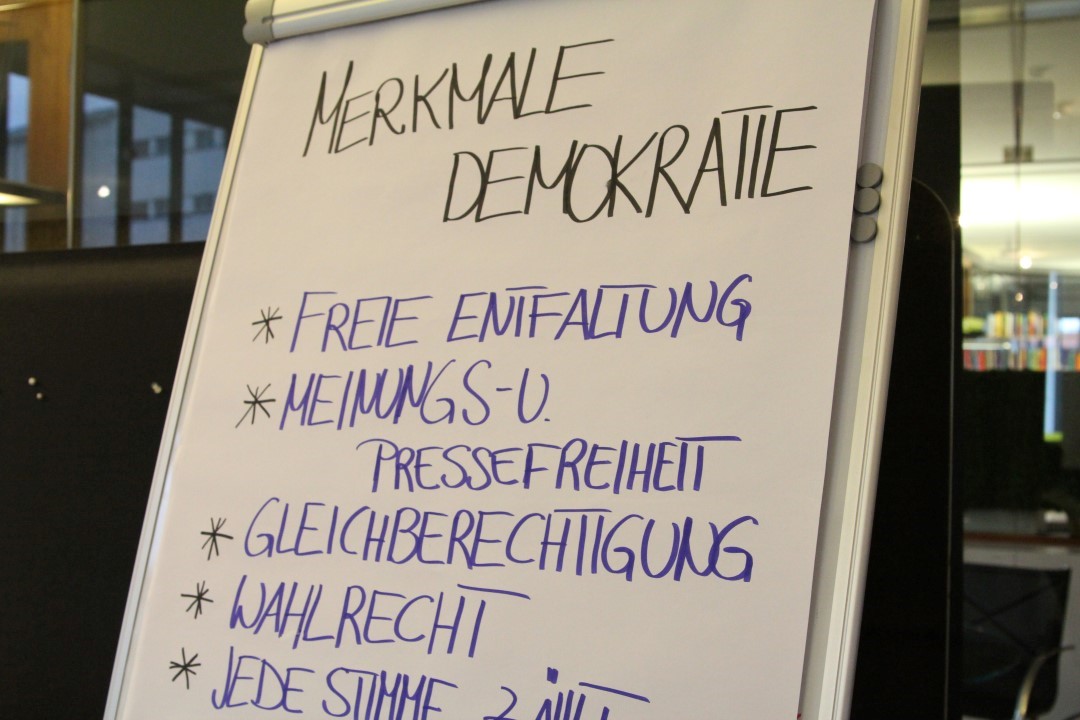 MERKMALE
DEMOKRATIE
* FREIE ENTFALTUNG
* MEINUNGS-U.
PRESSEFREIHEIT
* GLEICHBERECHTIGUNG
* WAHLRECHT
* JEDE STIMME ZÄHLT